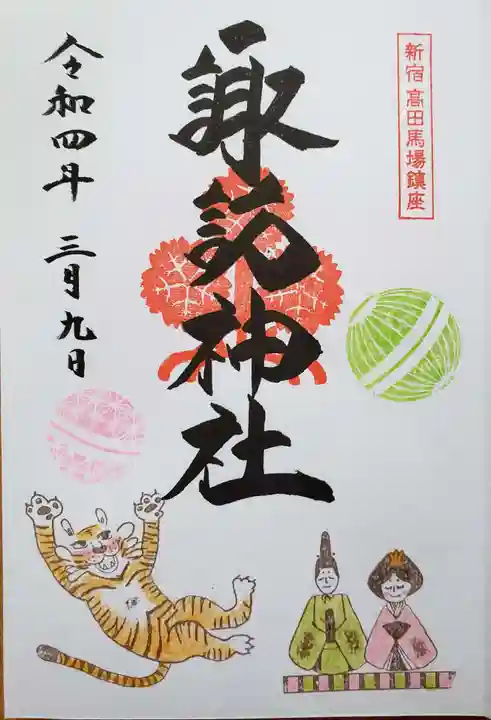 新宿高田馬場鎮座
諏訪神社
令和四年 三月九日